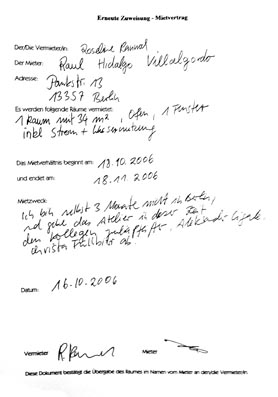 Erneute Zuweisung - Mietvertrag
Der/Die Vermieter/in:
Der Mieter: Raul Hidalgo Villalgordo
Adresse: Pankstr. 13
13357 Berlin
Es werden folgende Räume vermietet:
1 Raum mit 34 m², Ofen, 1 Fenster
inkl Strom +
Das Mietverhältnis beginnt am: 18.10.2006
und endet am: 18.11.2006
Mietzweck:
Ich bin selbst 3 Monate nicht in Berlin,
und gebe das Atelier in dieser Zeit
den Kollegen
ab.
Datum: 16.10.2006
Vermieter Mieter
Diese Dokument bestätigt die Übergabe des Raumes im Namen vom Mieter an den/die Vermieter/in.